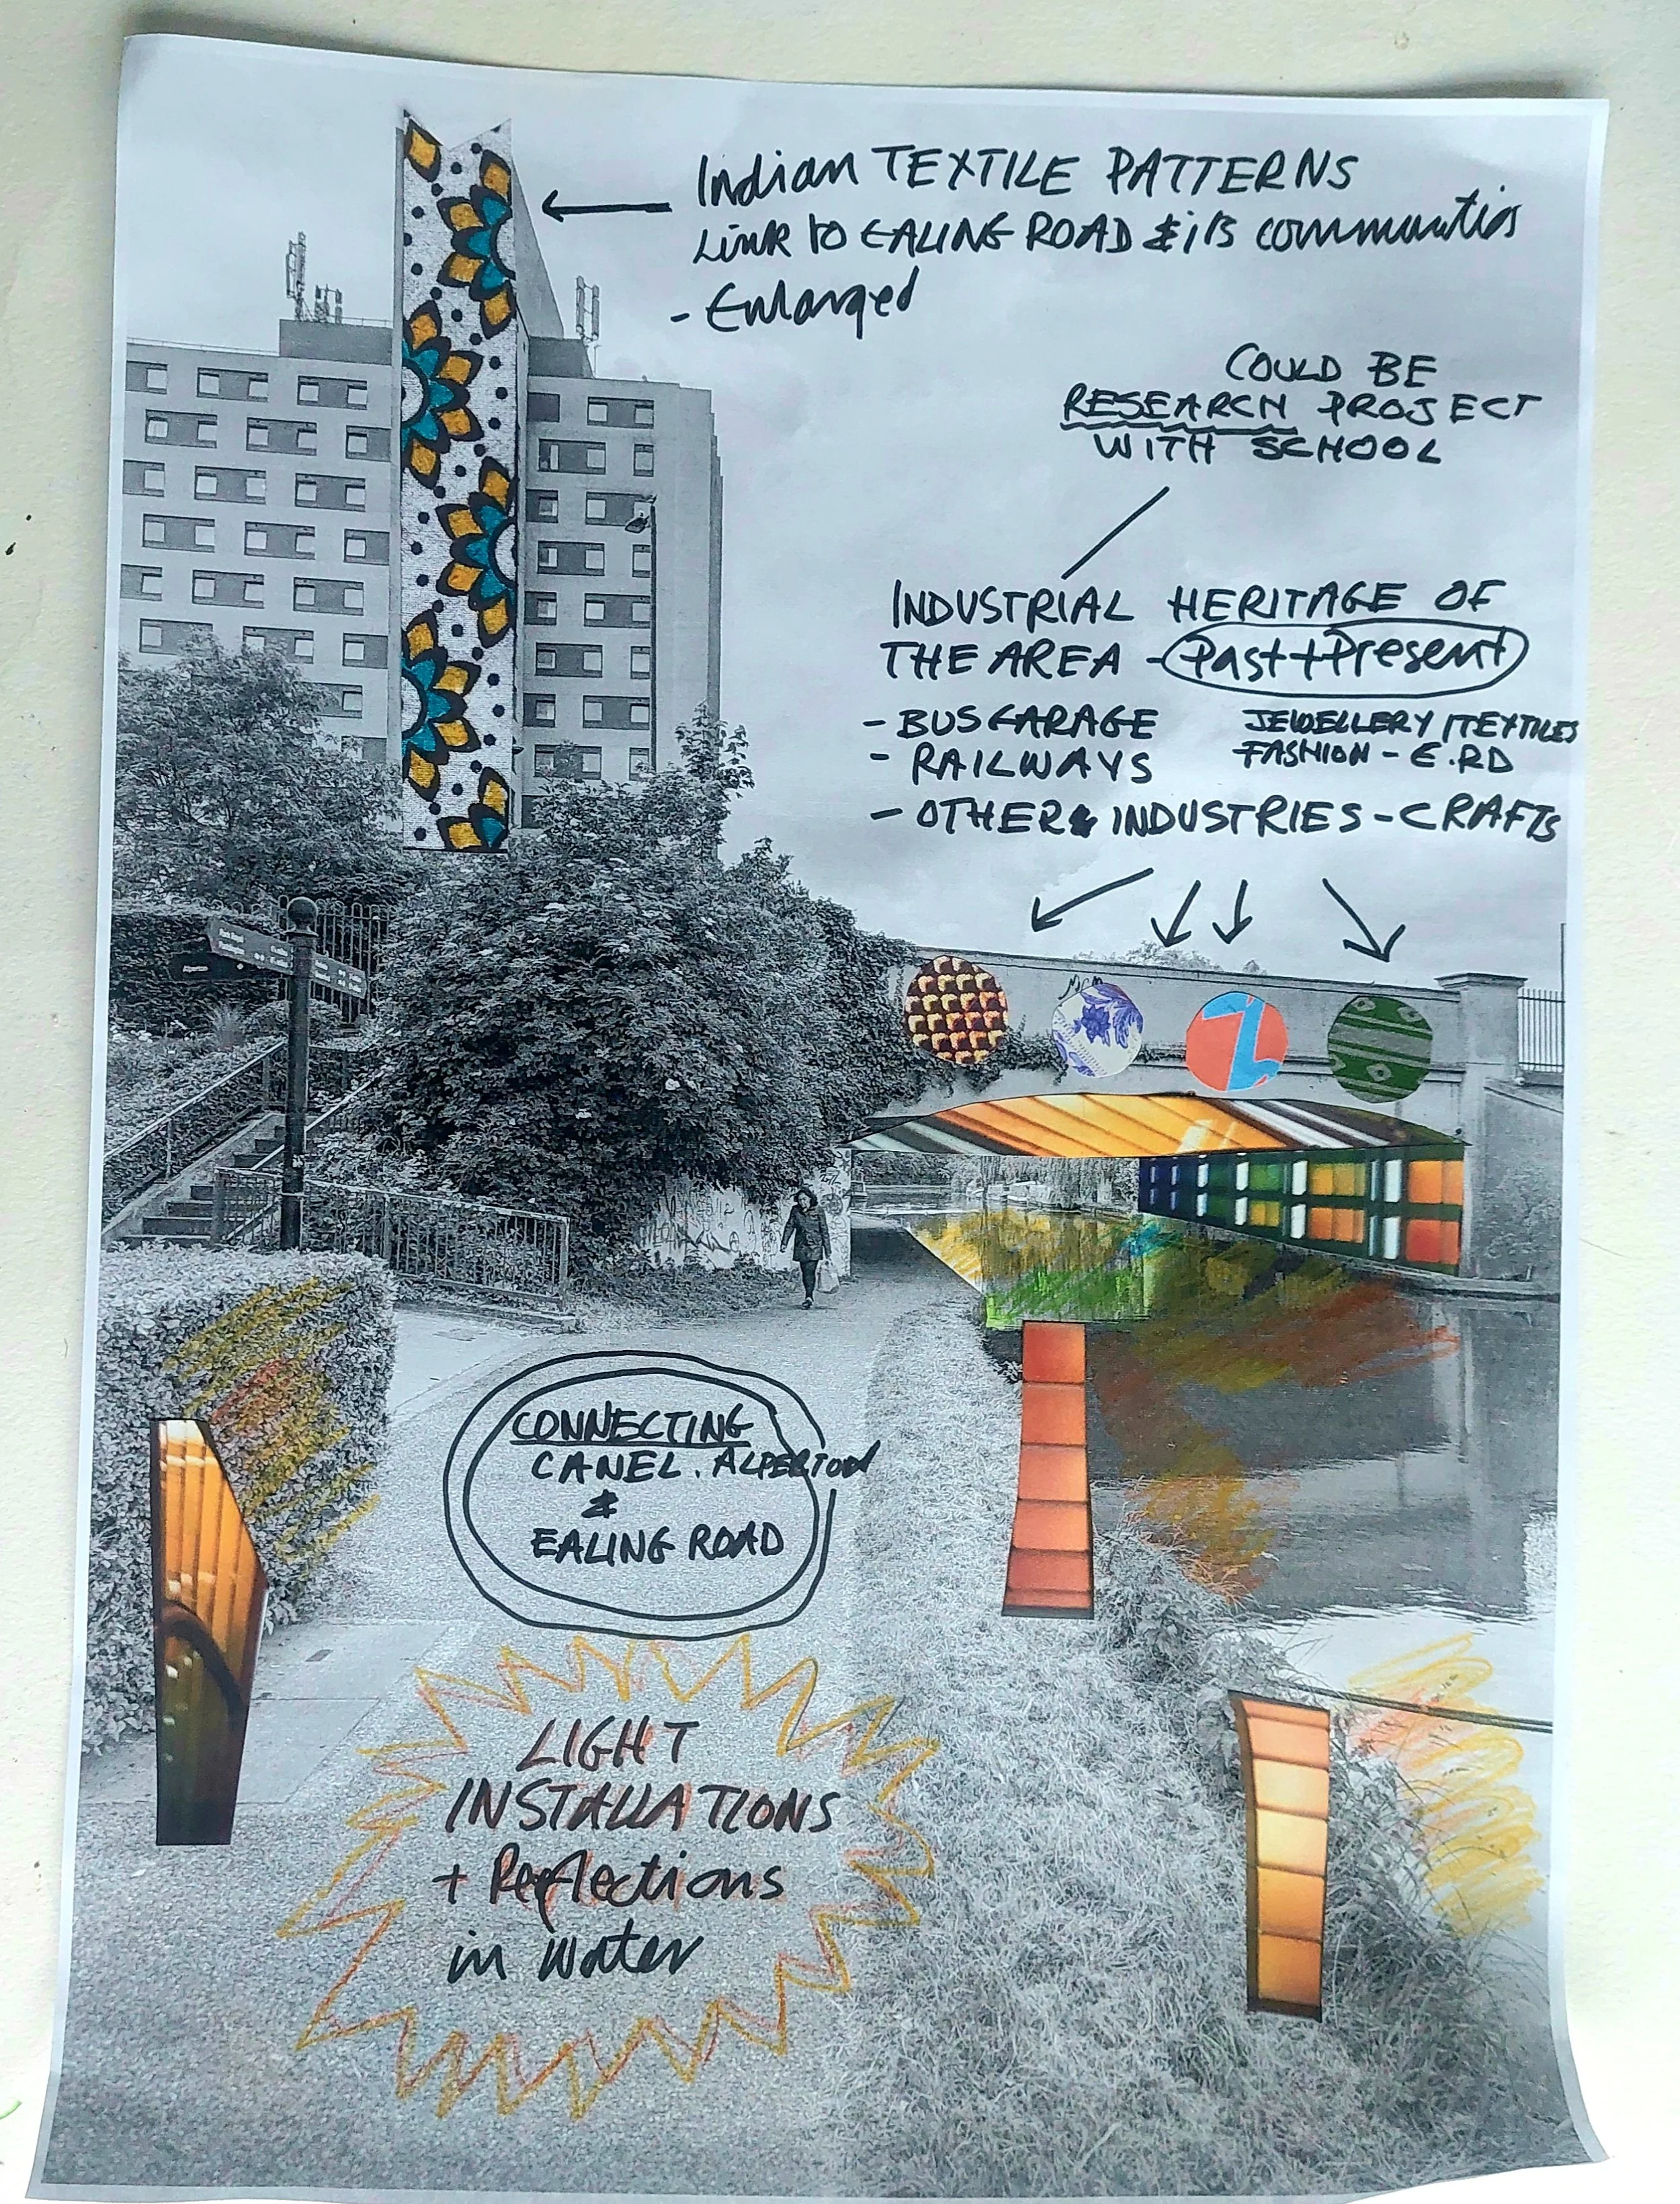 Indian TEXTILE PATTERNS
LINK TO EALING ROAD & its communities
- Enlarged
COULD BE
RESEARCH PROJECT
WITH SCHOOL
INDUSTRIAL HERITAGE OF
THE AREA - Past + Present
- BUS GARAGE
- RAILWAYS
- OTHER INDUSTRIES - CRAFTS
JEWELLERY / TEXTILES
FASHION - E.RD
Alperton
CONNECTING
CANEL. ALPERTON
&
EALING ROAD
LIGHT
INSTALLATIONS
+ Reflections
in water